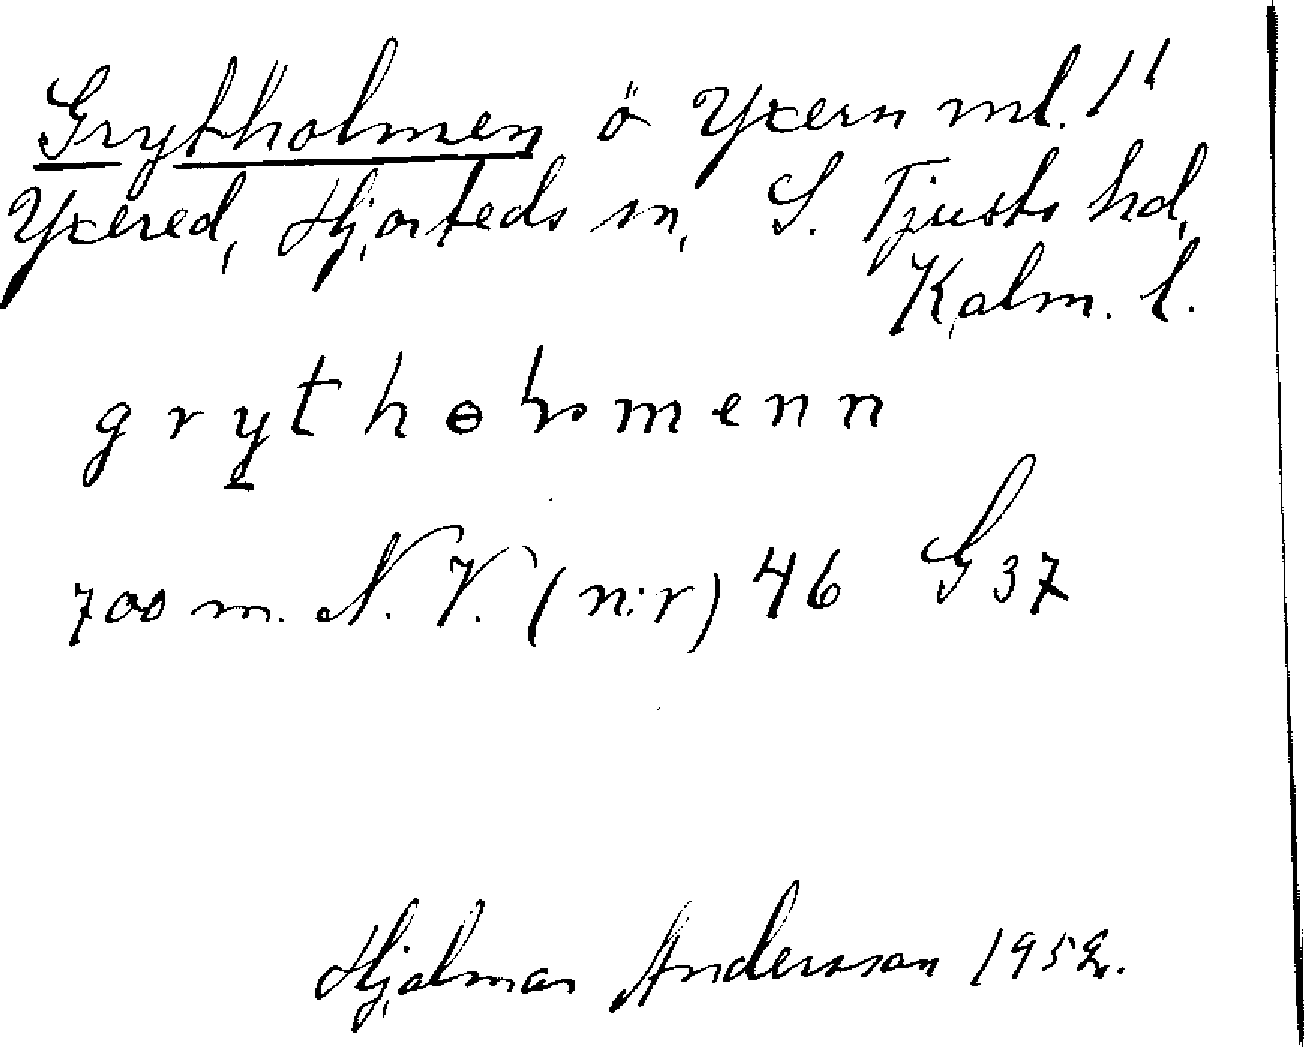 Grytholmen ö Yxern ml. 1¹
Yxered, Hjorteds sn, S. Tjusts hd,
Kalm. l.
grythɵlmenn
700 m. N. V. (n:r) 46 G 37
Hjalmar Andersson 1952.